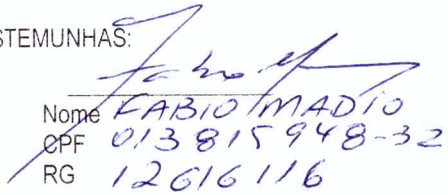 STEMUNHAS:
Nome FABIO MADIO
CPF 013815948-32
RG 12616116